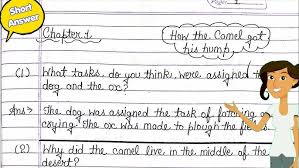 Short
Answer
Page
Chapter 1
How the Camel got
his hump.
(1) What tasks, do you think, were assigned
dog and the ox?
Ans> The dog was assigned the task of fetching or
crying. The ox was made to plough the fields.
(2) Why did the camel live in the middle of the
desert?